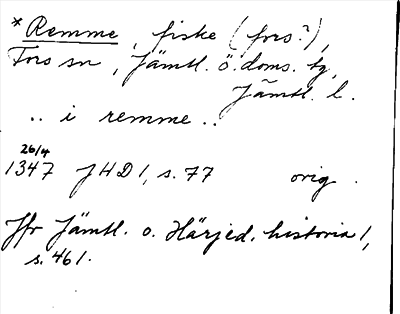 *Remme, fiske (fors?),
Fors sn, Jämtl. ö. doms. tg,
Jämtl. l.
.. i remme ..
26/4
1347 JHD 1, s. 77 orig.
Jfr Jämtl. o. Härjed. historia 1,
s. 461.